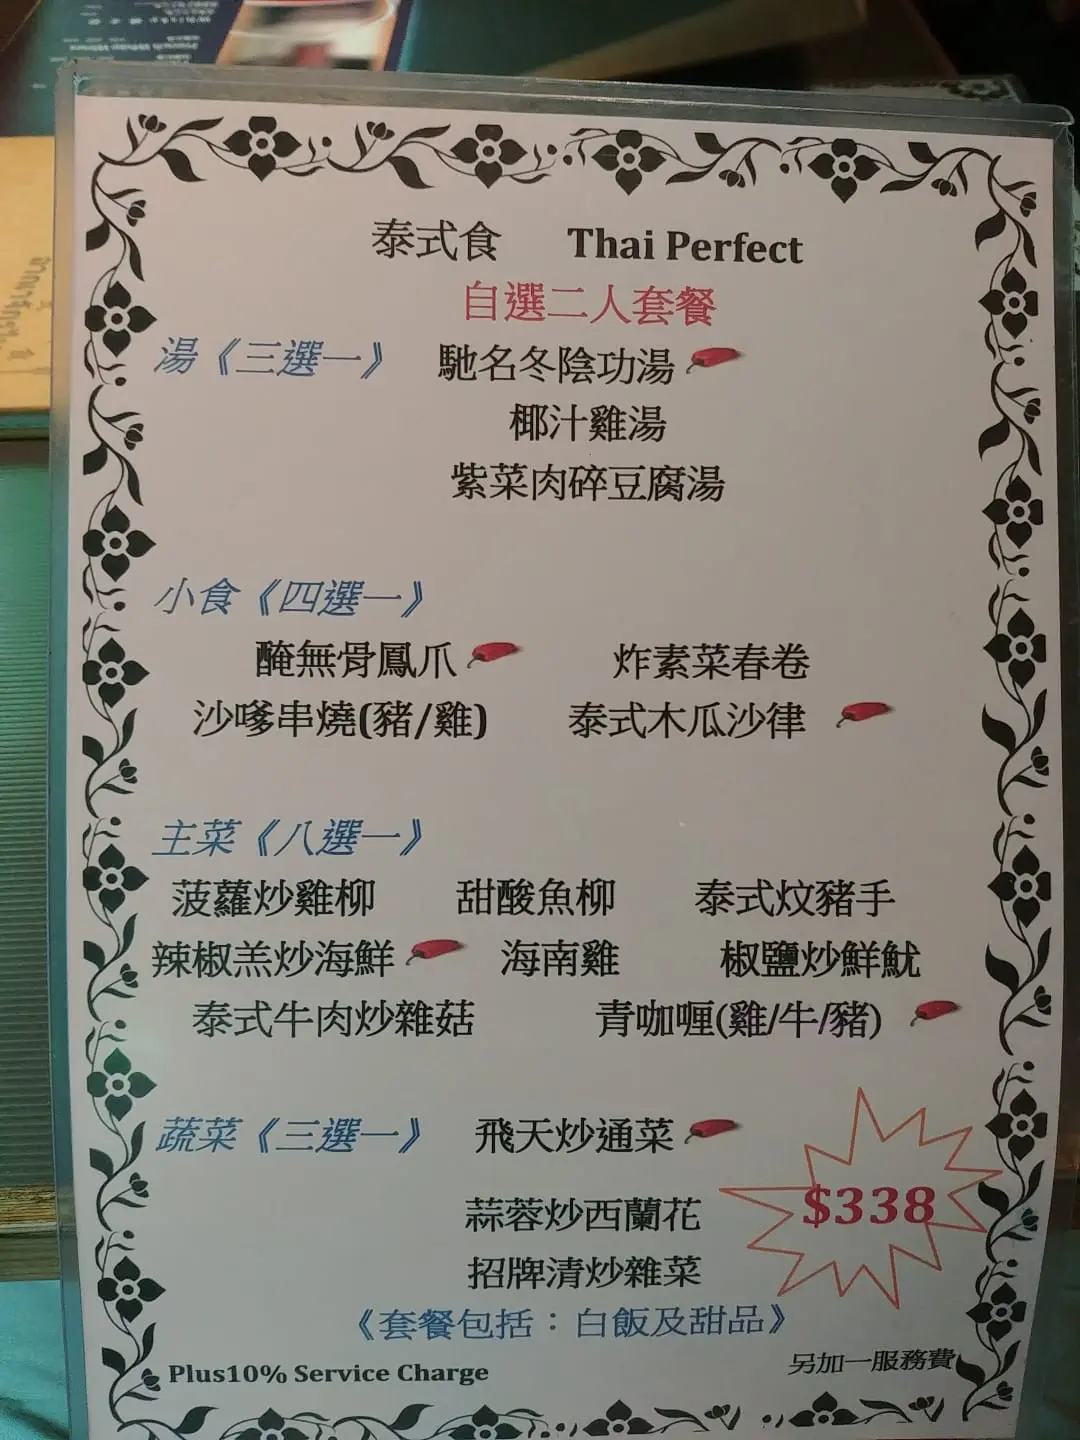 泰式食 Thai Perfect
自選二人套餐
湯《三選一》 馳名冬陰功湯
椰汁雞湯
紫菜肉碎豆腐湯
小食《四選一》
醃無骨鳳爪 炸素菜春卷
沙嗲串燒(豬/雞) 泰式木瓜沙律
主菜《八選一》
菠蘿炒雞柳 甜酸魚柳 泰式炆豬手
辣椒羔炒海鮮 海南雞 椒鹽炒鮮魷
泰式牛肉炒雜菇 青咖喱(雞/牛/豬)
蔬菜《三選一》 飛天炒通菜
蒜蓉炒西蘭花
$338
招牌清炒雜菜
《套餐包括：白飯及甜品》
Plus10% Service Charge 另加一服務費